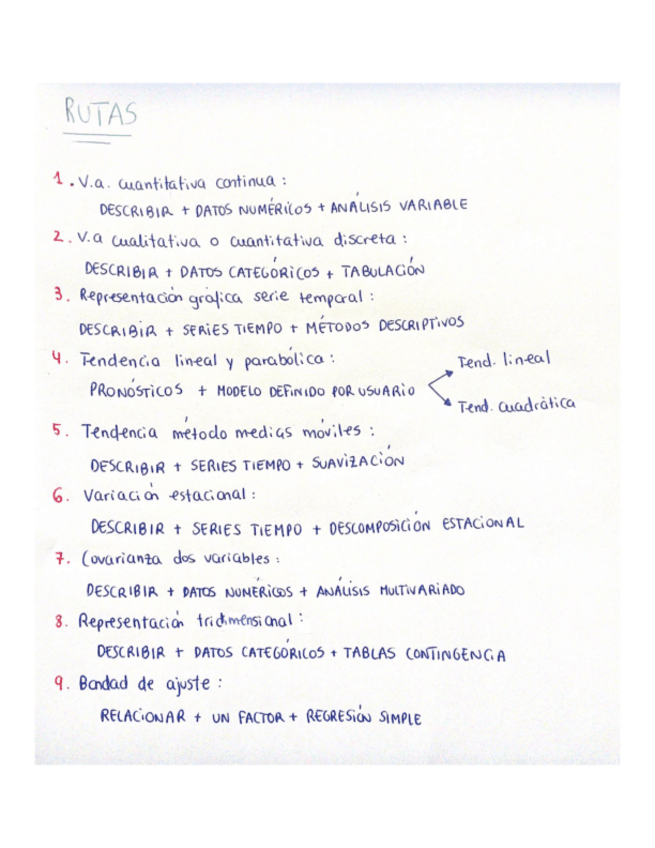 RUTAS
1. V.a. cuantitativa continua :
DESCRIBIR + DATOS NUMÉRICOS + ANÁLISIS VARIABLE
2. V.a cualitativa o cuantitativa discreta :
DESCRIBIR + DATOS CATEGÓRICOS + TABULACIÓN
3. Representación gráfica serie temporal :
DESCRIBIR + SERIES TIEMPO + MÉTODOS DESCRIPTIVOS
4. Tendencia lineal y parabólica :
Tend. lineal
PRONÓSTICOS + MODELO DEFINIDO POR USUARIO
Tend. cuadrática
5. Tendencia método medias móviles :
DESCRIBIR + SERIES TIEMPO + SUAVIZACIÓN
6. Variación estacional :
DESCRIBIR + SERIES TIEMPO + DESCOMPOSICIÓN ESTACIONAL
7. Covarianza dos variables :
DESCRIBIR + DATOS NUMÉRICOS + ANÁLISIS MULTIVARIADO
8. Representación tridimensional :
DESCRIBIR + DATOS CATEGÓRICOS + TABLAS CONTINGENCIA
9. Bondad de ajuste :
RELACIONAR + UN FACTOR + REGRESIÓN SIMPLE